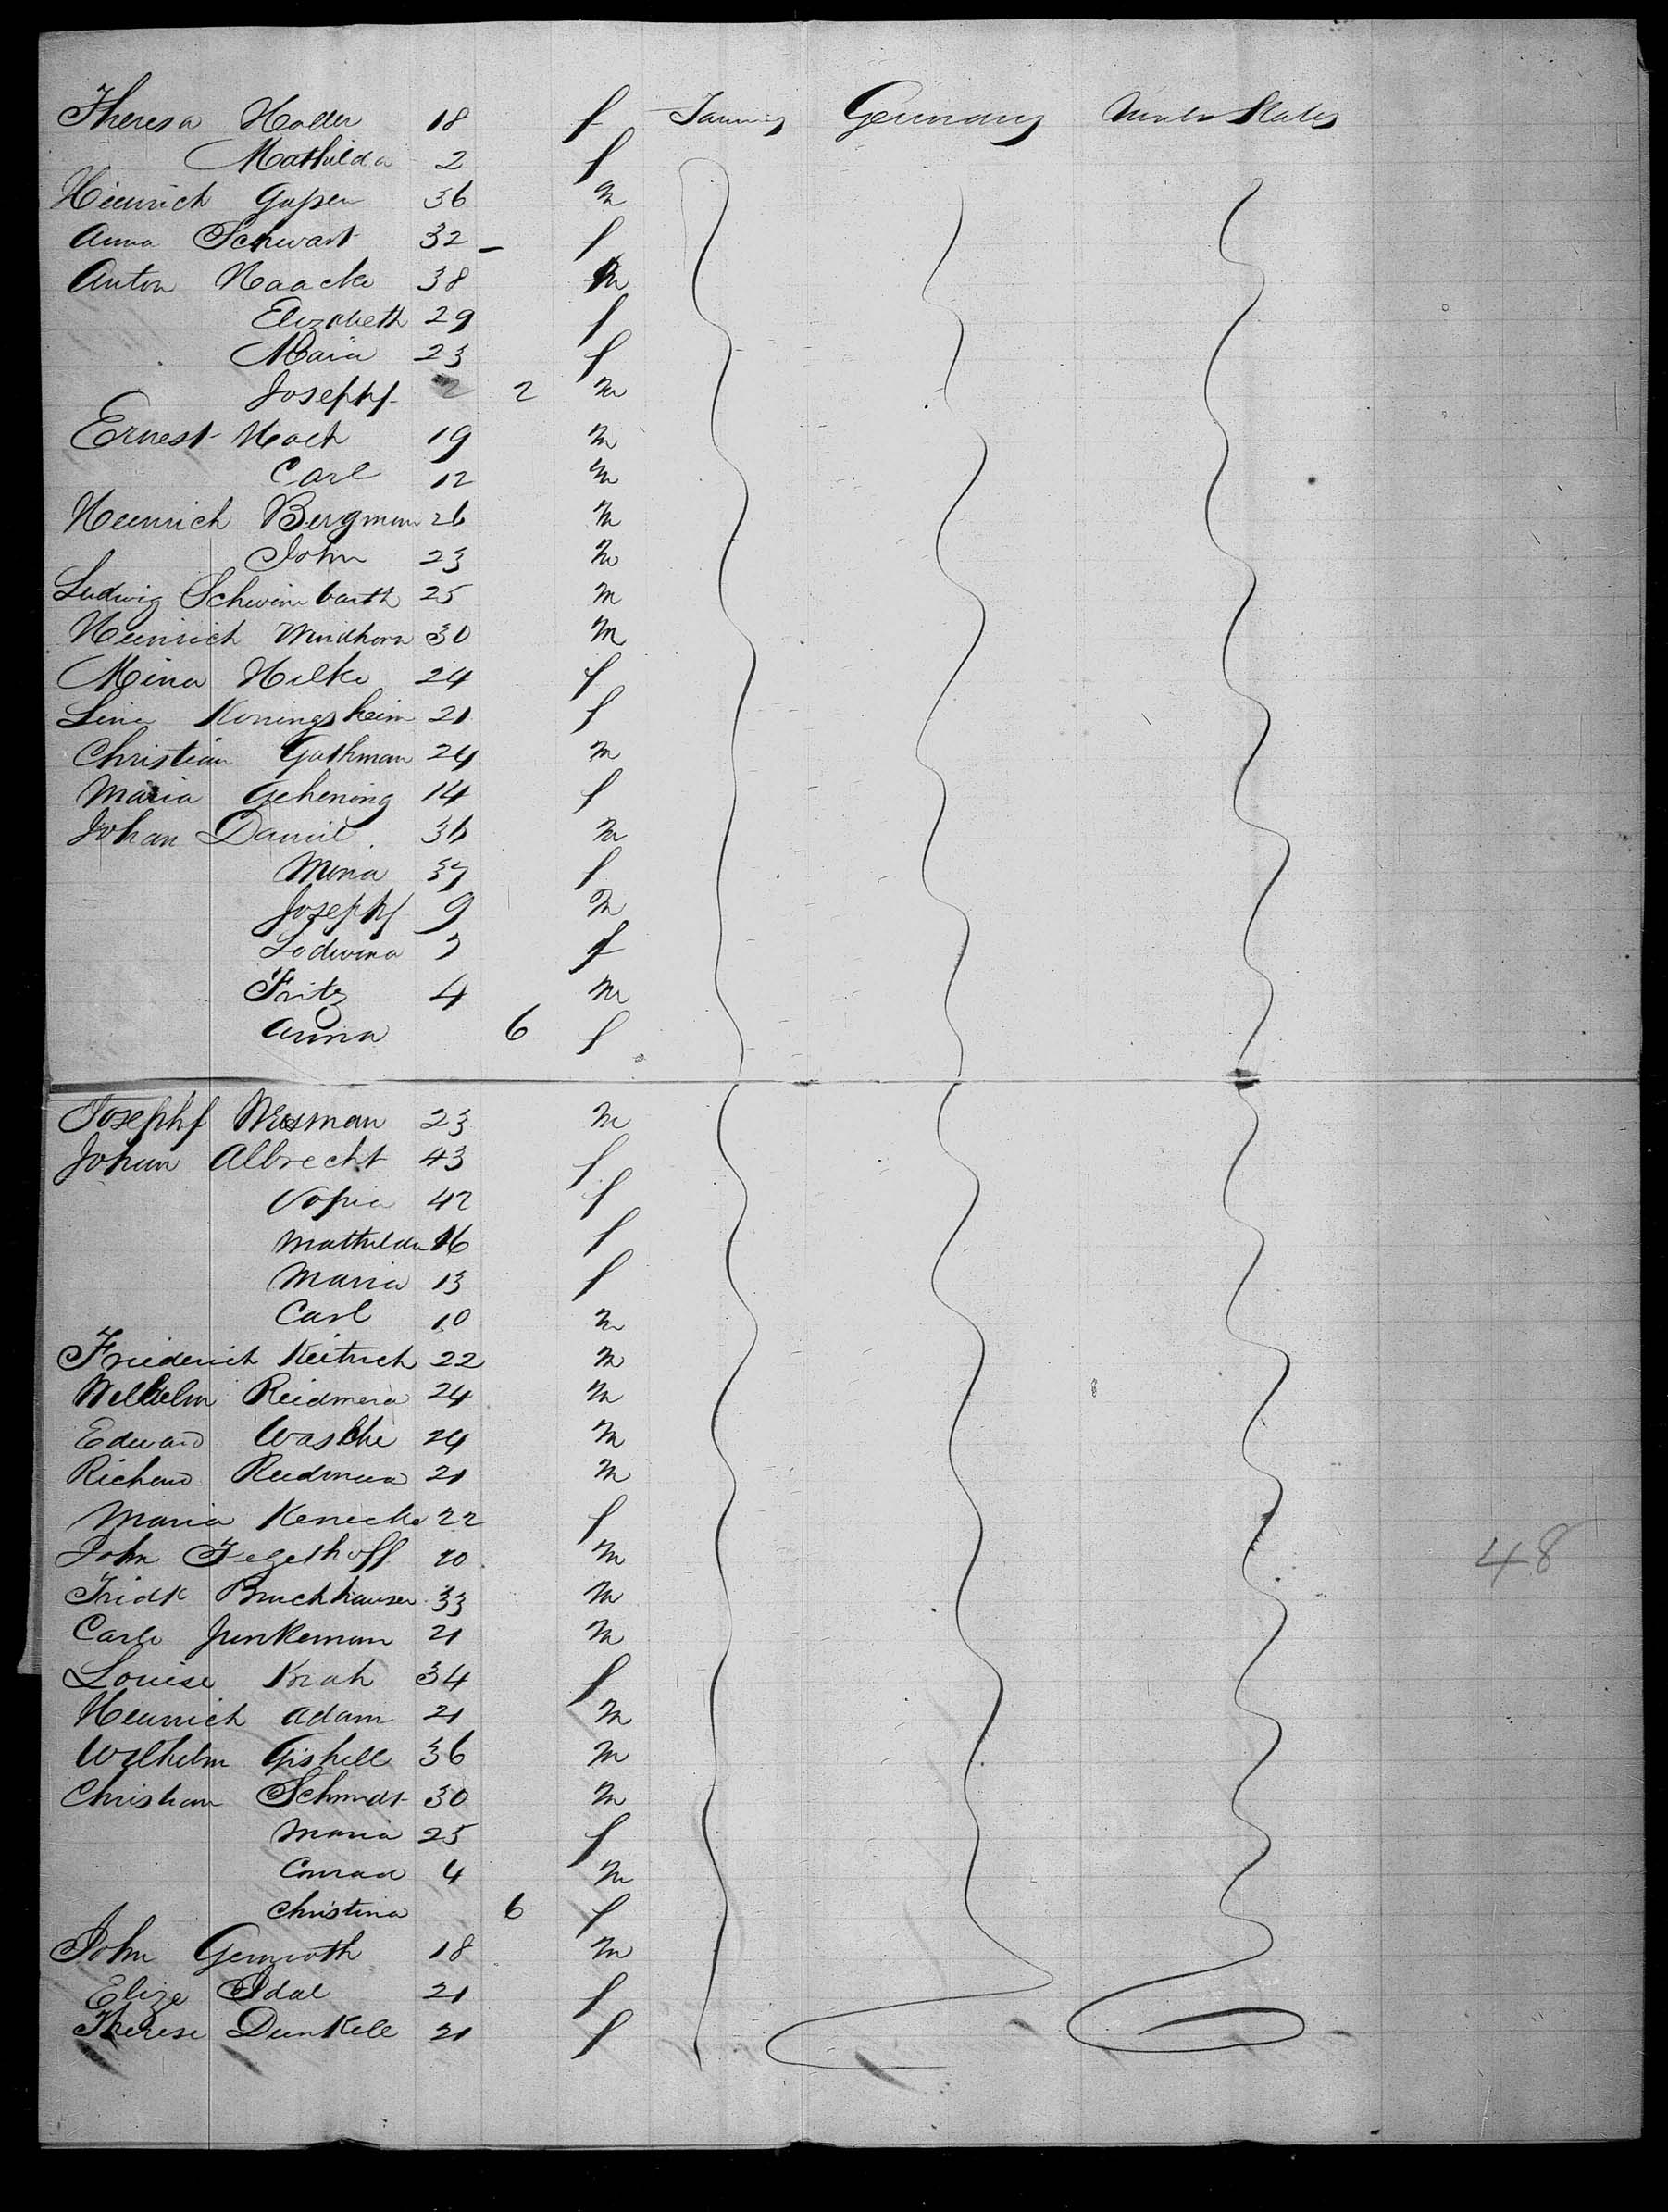 Theresa Holler 18 f Farming Germany United States
Mathilda 2 f
Heinrich Gapen 36 m
Anna Schwart 32 – f
Anton Haacke 38 m
Elizabeth 29 f
Maria 23 f
Josephf 2 2 m
Ernest Hoch 19 m
Carl 12 m
Heinrich Bergman 26 m
John 23 m
Ludwig Schwinbarth 25 m
Heinrich Windhorn 30 m
Mina Hilke 24 f
Lina Koningsheim 21 f
Christian Guthman 24 m
Maria Gehening 14 f
Johan Daniel 36 m
Mina 37 f
Josephf 9 m
Lodwina 7 f
Fritz 4 m
Anna 6 f
Josephf Wesman 23 m
Johan Albrecht 43 f
Sopia 42 f
Mathilda 16 f
Maria 13 f
Carl 10 m
Friederich Keitrich 22 m
Wilhelm Reidmera 24 m
Edward Wasche 24 m
Richard Reidmera 21 m
Maria Kenecke 22 f
John Tegethoff 20 m 48
Fridk Bruchhauser 33 m
Carl Junkeman 21 m
Louise Krah 34 f
Heinrich Adam 21 m
Wilhelm Gishell 36 m
Christian Schmidt 30 m
Maria 25 f
Conrad 4 m
Christina 6 f
John Gernroth 18 m
Elize Idal 21 f
Therese Dunkell 21 f